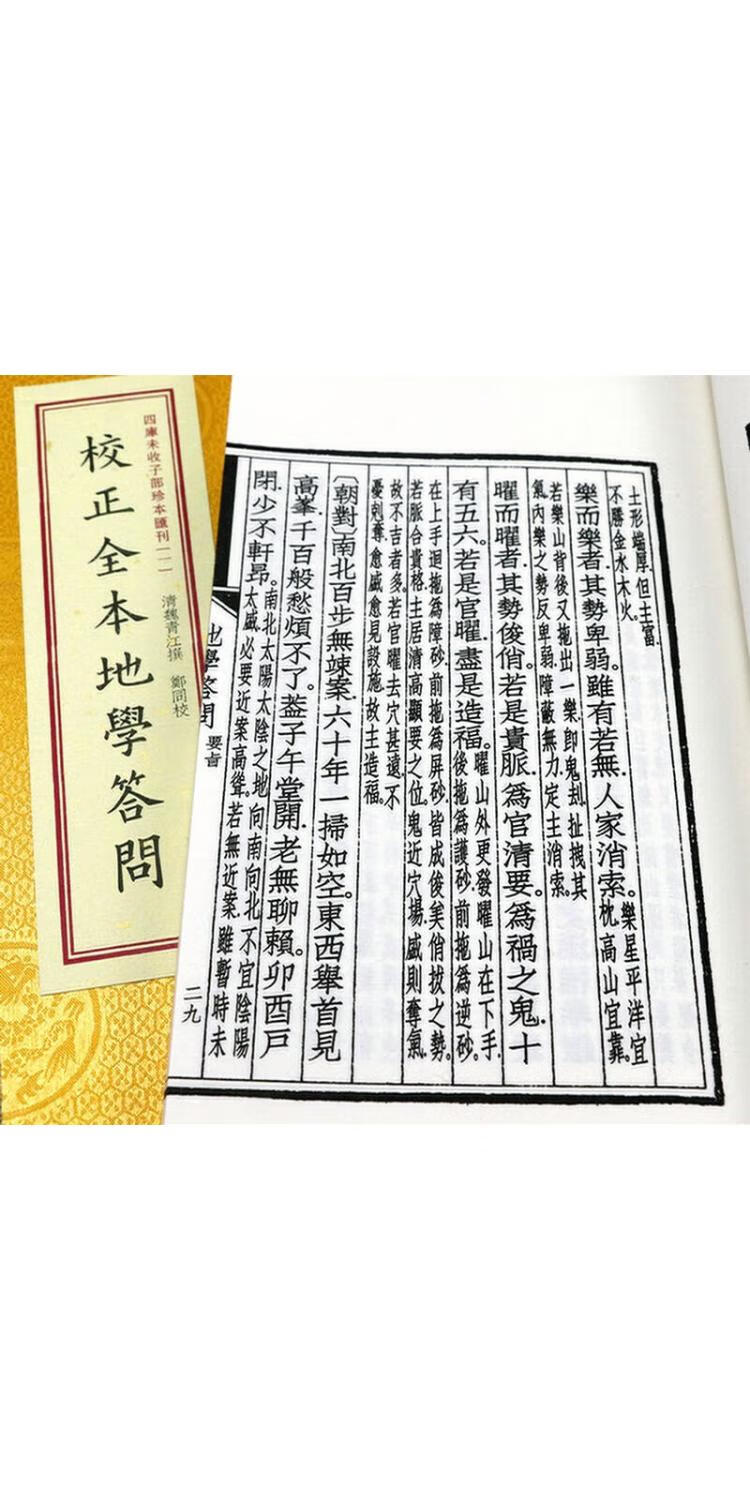 四庫未收子部珍本匯刊(一)
校正全本地學答問
清魏青江撰 鄭同校
土形端厚.但主富.
不勝金水木火.
樂而樂者.其勢卑弱。雖有若無.人家消索。樂星平洋宜
枕.高山宜靠。
若樂山背後又拖出一樂.即鬼刦扯拽其
氣內樂之勢反卑弱.障蔽無力.定主消索。
曜而曜者.其勢俊俏。若是貴脈.為官清要。為禍之鬼.十
有五六。若是官曜.盡是造福。曜山外更發曜山在下手.
後拖為護砂.前拖為逆砂。
在上手迴拖為障砂.前拖為屏砂.皆成後矣俏拔之勢。
若脈合貴格.主居清高顯要之位。鬼近穴場.感則奪氣.
故不吉者多.若官曜去穴甚遠.不
憂剋奪.愈感愈見設施.故主造福。
〔朝對〕南北百步無竦案.六十年一掃如空。東西舉首見
高峯.千百般愁煩不了。葢子午堂開.老無聊賴。卯酉戸
閉.少不軒昂。南北太陽太陰之地.向南向北.不宜陰陽
太感.必要近案高聳。若無近案.雖暫時未
地學答問 要旨
二九